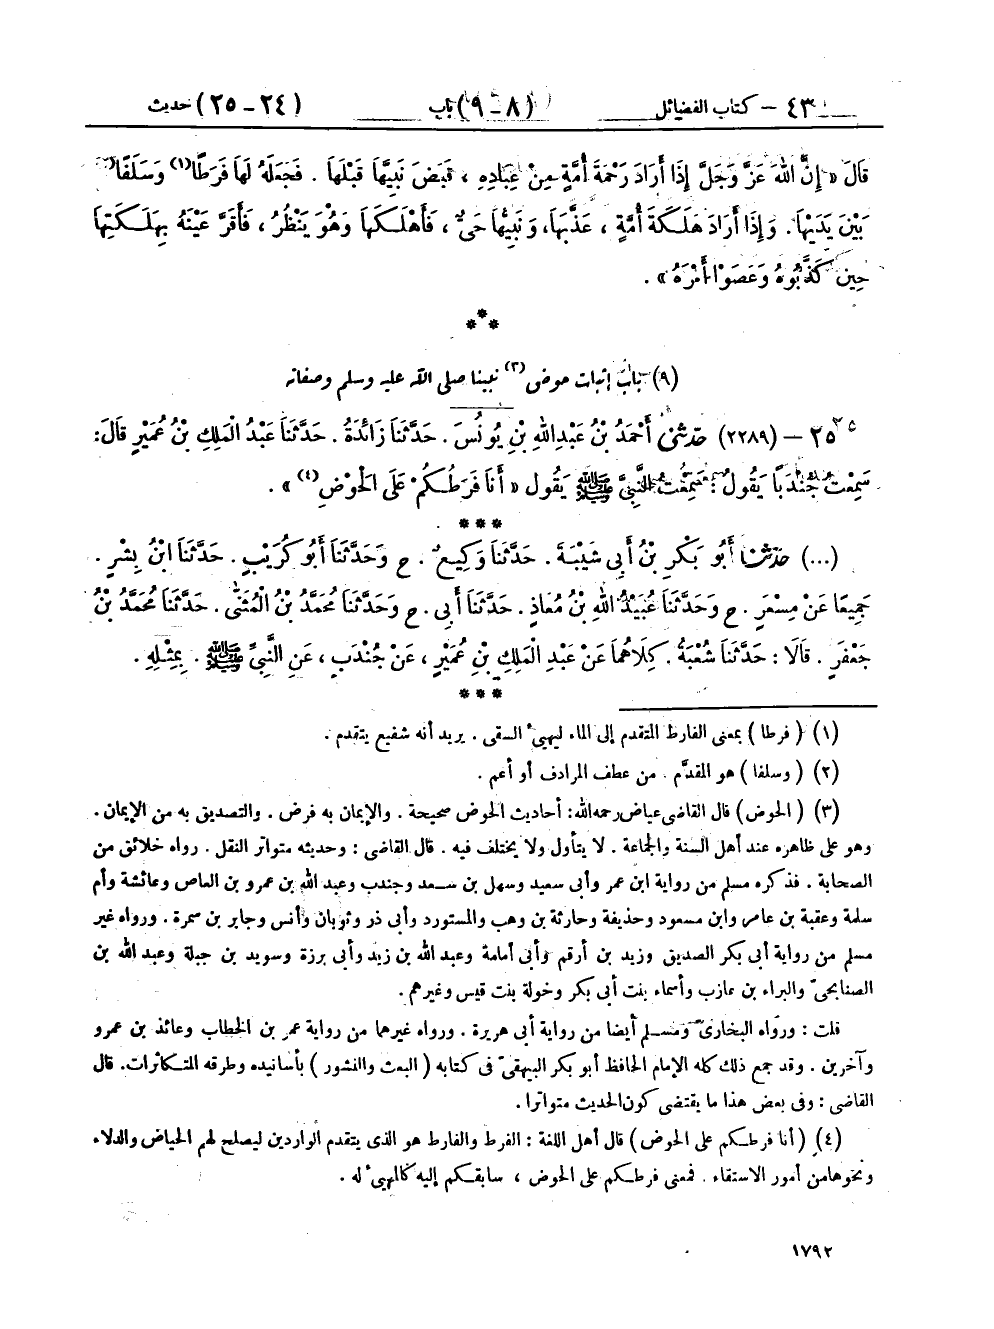 ٤٣ – كتاب الفضائل (٨ – ٩) باب (٢٤ – ٢٥) حديث
قَالَ « إِنَّ اللهَ عَزَّ وَجَلَّ إِذَا أَرَادَ رَحْمَةَ أُمَّةٍ مِنْ عِبَادِهِ ، قَبَضَ نَبِيَّهَا قَبْلَهَا . فَجَعَلَهُ لَهَا فَرَطًا(١) وَسَلَفًا(٢)
بَيْنَ يَدَيْهَا . وَإِذَا أَرَادَ هَلَكَةَ أُمَّةٍ ، عَذَّبَهَا، وَنَبِيُّهَا حَىٌّ ، فَأَهْلَكَهَا وَهُوَ يَنْظُرُ ، فَأَقَرَّ عَيْنَهُ بِهَلَكَتِهَا
حِينَ كَذَّبُوهُ وَعَصَوْا أَمْرَهُ » .
***
(٩) باب إثبات حوض(٣) نبينا صلى الله عليه وسلم وصفاته
٢٥ – (٢٢٨٩) حَدَّثَنِي أَحْمَدُ بْنُ عَبْدِ اللهِ بْنِ يُونُسَ . حَدَّثَنَا زَائِدَةُ . حَدَّثَنَا عَبْدُ الْمَلِكِ بْنُ عُمَيْرٍ قَالَ:
سَمِعْتُ جُنْدَبًا يَقُولُ : سَمِعْتُ النَّبِيَّ ﷺ يَقُولُ « أَنَا فَرَطُكُمْ عَلَى الْحَوْضِ(٤) » .
***
(...) حَدَّثَنَا أَبُو بَكْرِ بْنُ أَبِي شَيْبَةَ . حَدَّثَنَا وَكِيعٌ . ح وَحَدَّثَنَا أَبُو كُرَيْبٍ . حَدَّثَنَا ابْنُ بِشْرٍ .
جَمِيعًا عَنْ مِسْعَرٍ . ح وَحَدَّثَنَا عُبَيْدُ اللهِ بْنُ مُعَاذٍ . حَدَّثَنَا أَبِي . ح وَحَدَّثَنَا مُحَمَّدُ بْنُ الْمُثَنَّى . حَدَّثَنَا مُحَمَّدُ بْنُ
جَعْفَرٍ . قَالَا : حَدَّثَنَا شُعْبَةُ . كِلَاهُمَا عَنْ عَبْدِ الْمَلِكِ بْنِ عُمَيْرٍ ، عَنْ جُنْدَبٍ ، عَنِ النَّبِيِّ ﷺ . بِمِثْلِهِ .
***
(١) ( فرطا ) بمعنى الفارط المتقدم إلى الماء ليهيئ السقى . يريد أنه شفيع يتقدم .
(٢) ( وسلفا ) هو المقدَّم . من عطف المرادف أو أعم .
(٣) ( الحوض ) قال القاضى عياض رحمه الله: أحاديث الحوض صحيحة . والإيمان به فرض . والتصديق به من الإيمان .
وهو على ظاهره عند أهل السنة والجماعة . لا يتأول ولا يختلف فيه . قال القاضى : وحديثه متواتر النقل . رواه خلائق من
الصحابة . فذكره مسلم من رواية ابن عمر وأبى سعيد وسهل بن سعد وجندب وعبد الله بن عمرو بن العاص وعائشة وأم
سلمة وعقبة بن عامر وابن مسعود وحذيفة وحارثة بن وهب والمستورد وأبى ذر وثوبان وأنس وجابر بن سمرة . ورواه غير
مسلم من رواية أبى بكر الصديق وزيد بن أرقم وأبى أمامة وعبد الله بن زيد وأبى برزة وسويد بن جبلة وعبد الله بن
الصنابحىّ والبراء بن عازب وأسماء بنت أبى بكر وخولة بنت قيس وغيرهم .
قلت : ورواه البخارىّ ومسلم أيضا من رواية أبى هريرة . ورواه غيرهما من رواية عمر بن الخطاب وعائذ بن عمرو
وآخرين . وقد جمع ذلك كله الإمام الحافظ أبو بكر البيهقىّ فى كتابه ( البعث والنشور ) بأسانيده وطرقه المتكاثرات. قال
القاضى : وفى بعض هذا ما يقتضى كون الحديث متواترا .
(٤) ( أنا فرطكم على الحوض ) قال أهل اللغة : الفرط والفارط هو الذى يتقدم الواردين ليصلح لهم الحياض والدلاء
ونحوها من أمور الاستقاء . فمعنى فرطكم على الحوض ، سابقكم إليه كالمهيئ له .
١٧٩٢